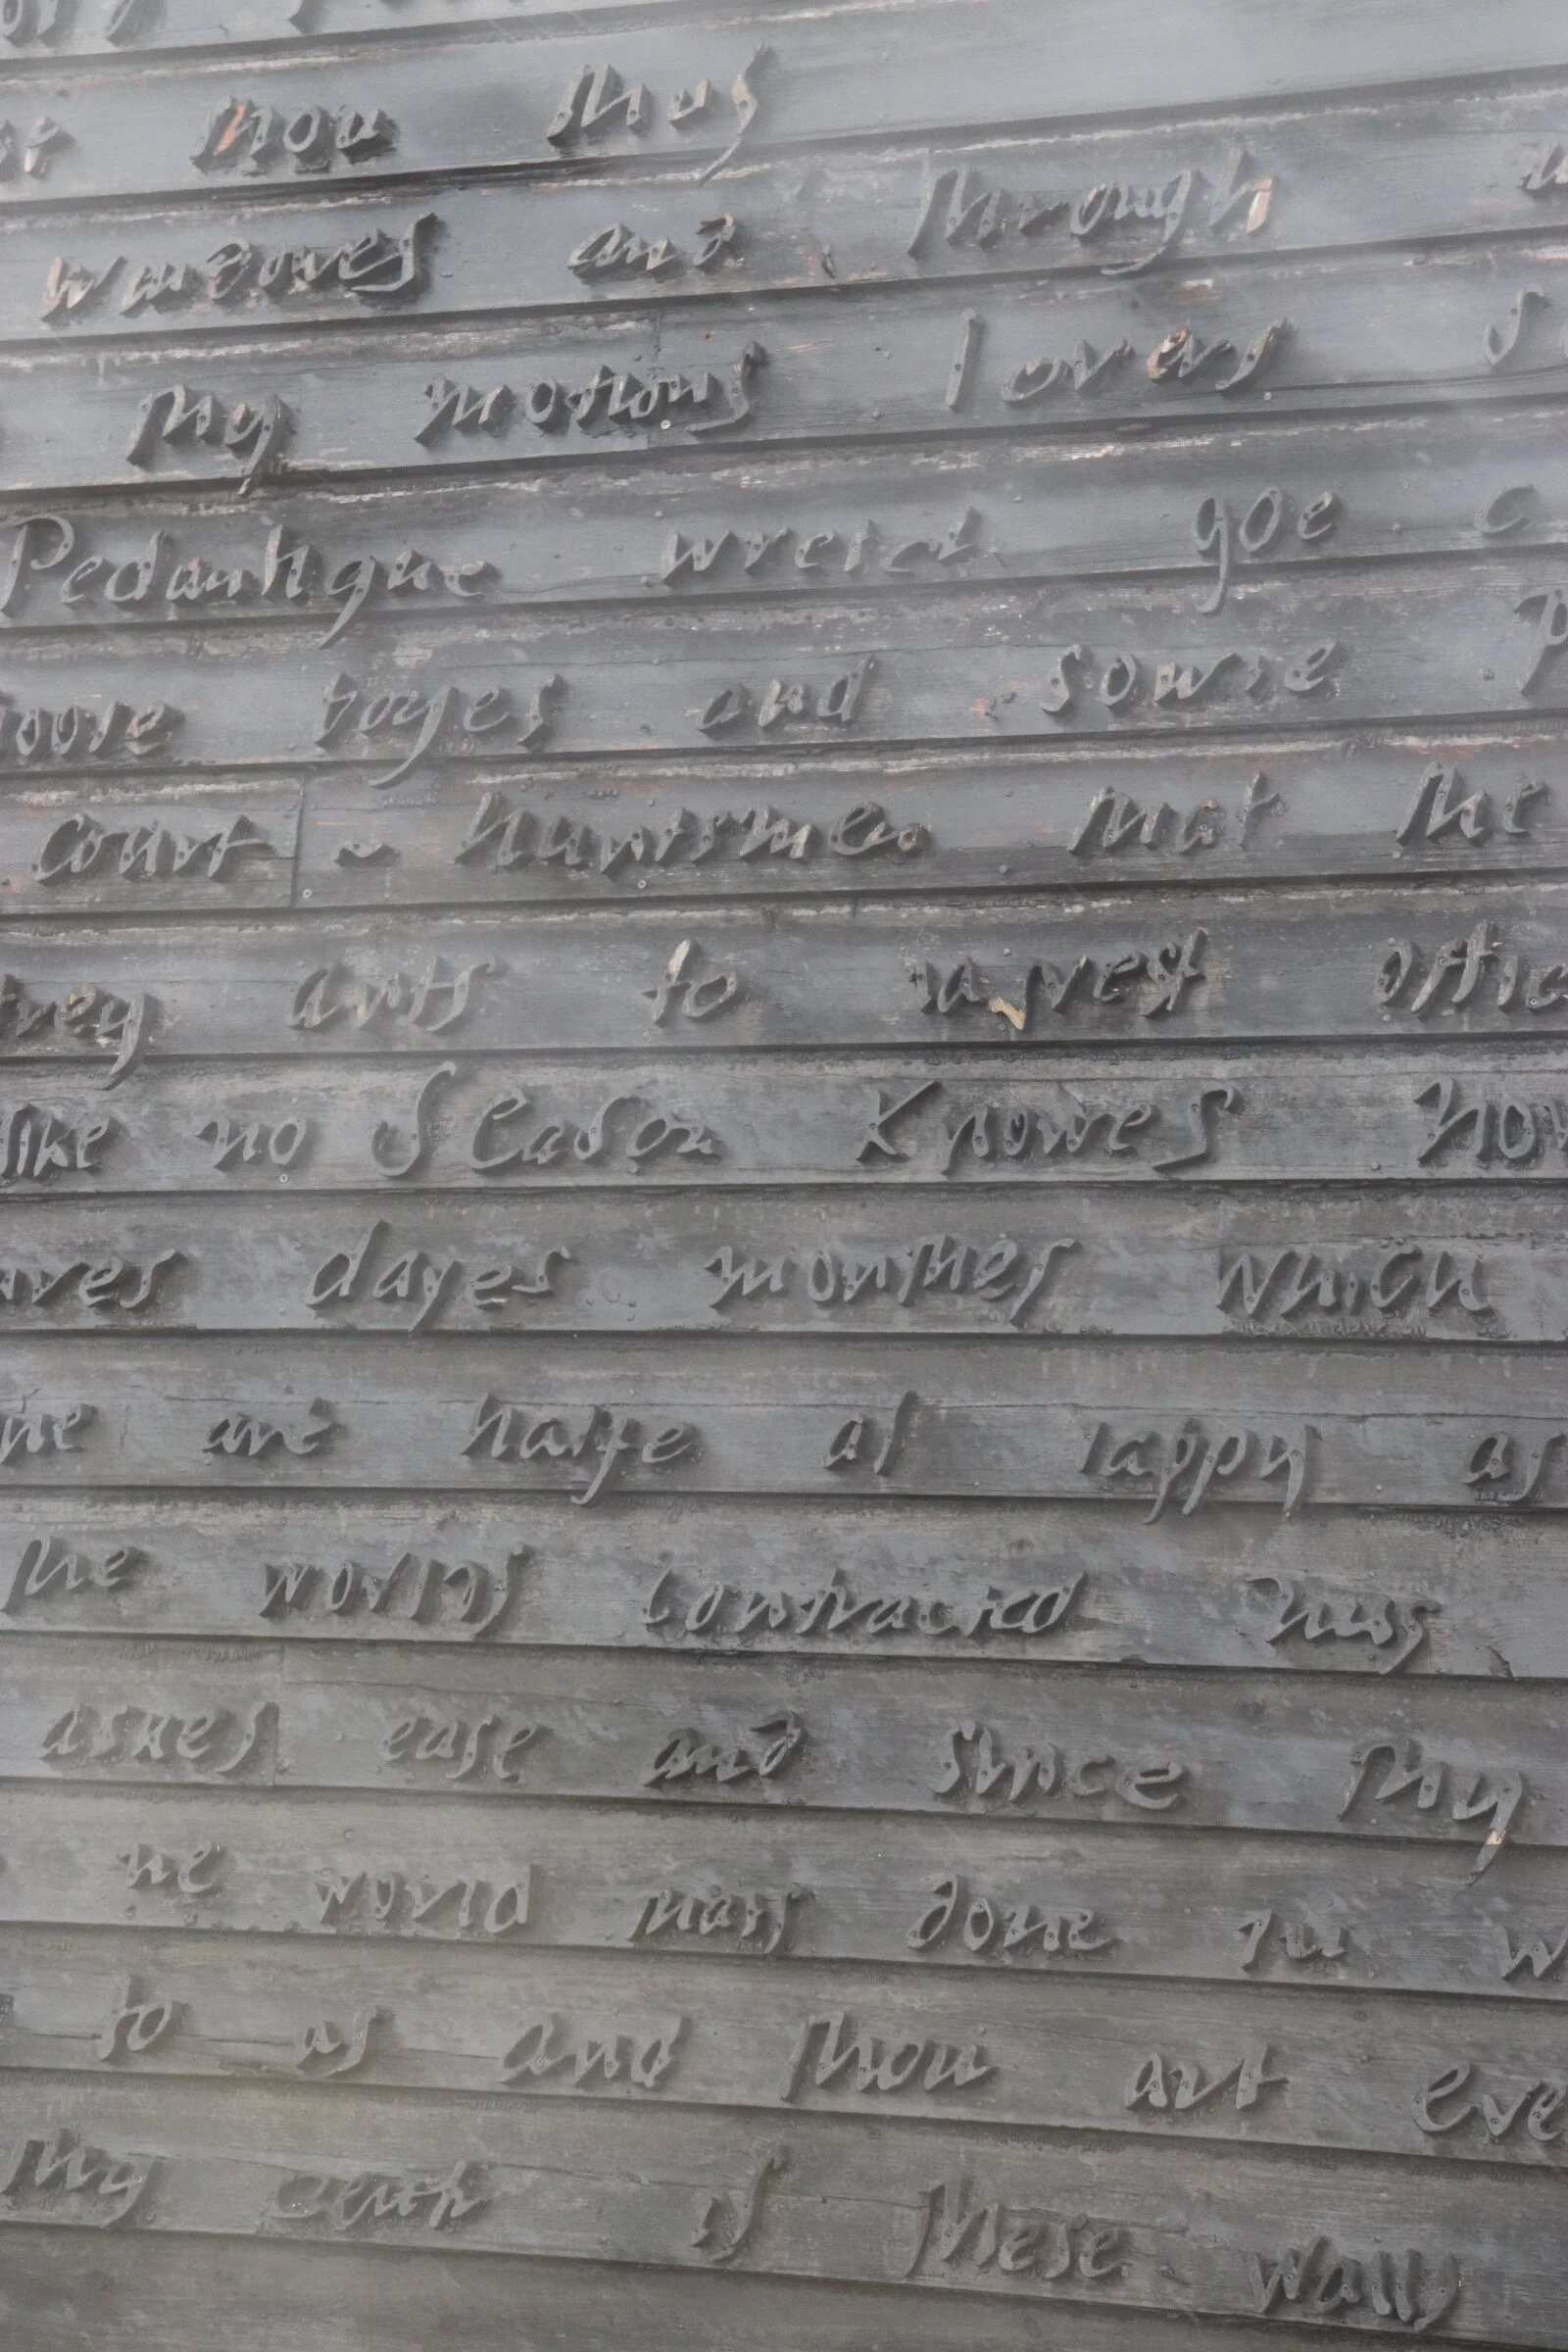 thou thus
windowes and through
thy motions lovers s
Pedantique wretch goe c
boyes and sowre p
court - huntsmen that the
trey ants to harvest offic
like no season knowes nor
dayes monthes which
are halfe as happy as
the worlds contracted thus
askes ease and since thy
he world thats done in w
to us and thou art eve
thy center is these walls